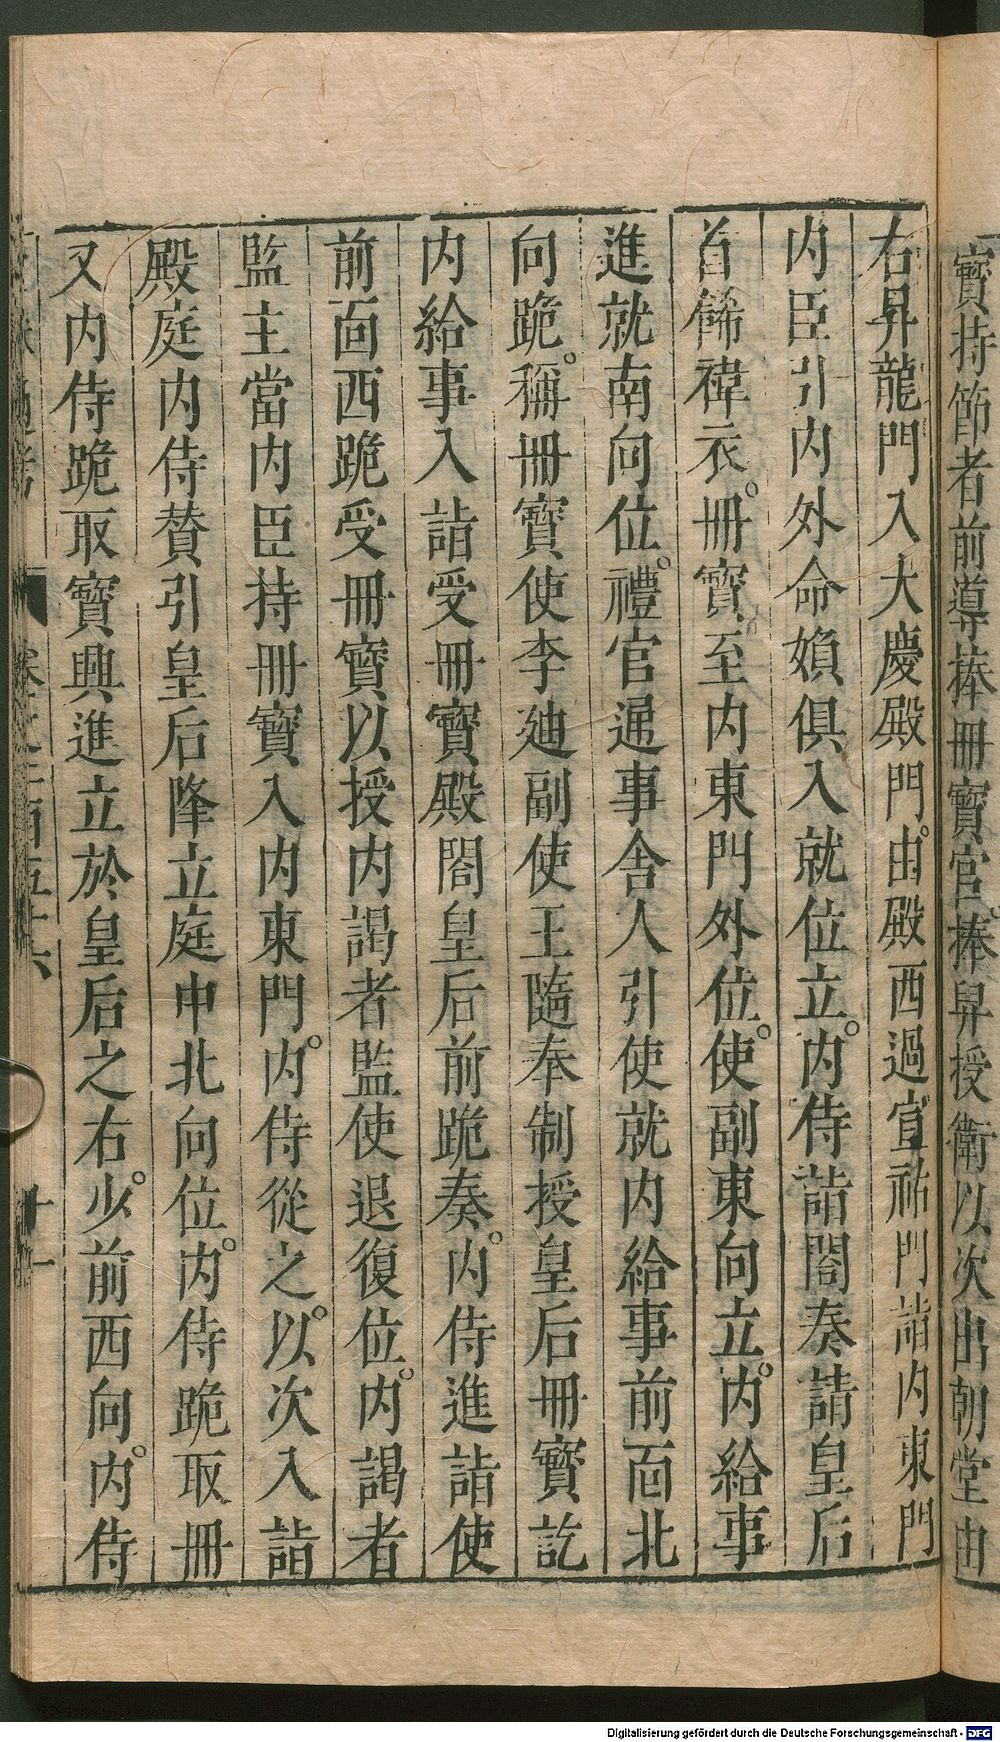 寳持節者前導捧冊寳官捧舁授衛以次出朝堂由
右昇龍門入大慶殿門由殿西過宣祐門詣内東門
内臣引内外命婦俱入就位立内侍詣閤奏請皇后
首飾褘衣冊寳至内東門外位使副東向立内給事
進就南向位禮官通事舍人引使就内給事前靣北
向跪稱冊寳使李廸副使王隨奉制授皇后冊寳訖
内給事入詣受冊寳殿閤皇后前跪奏内侍進詣使
前靣西跪受冊寳以授内謁者監使退復位内謁者
監主當内臣持冊寳入内東門内侍從之以次入詣
殿庭内侍賛引皇后降立庭中北向位内侍跪取冊
又内侍跪取寳興進立於皇后之右少前西向内侍
十一
Digitalisierung gefördert durch die Deutsche Forschungsgemeinschaft - DFG